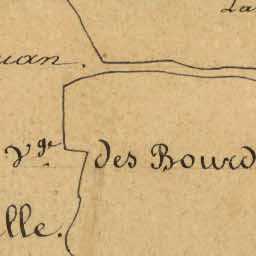 La
uan.
Vge des Bourd
lle.